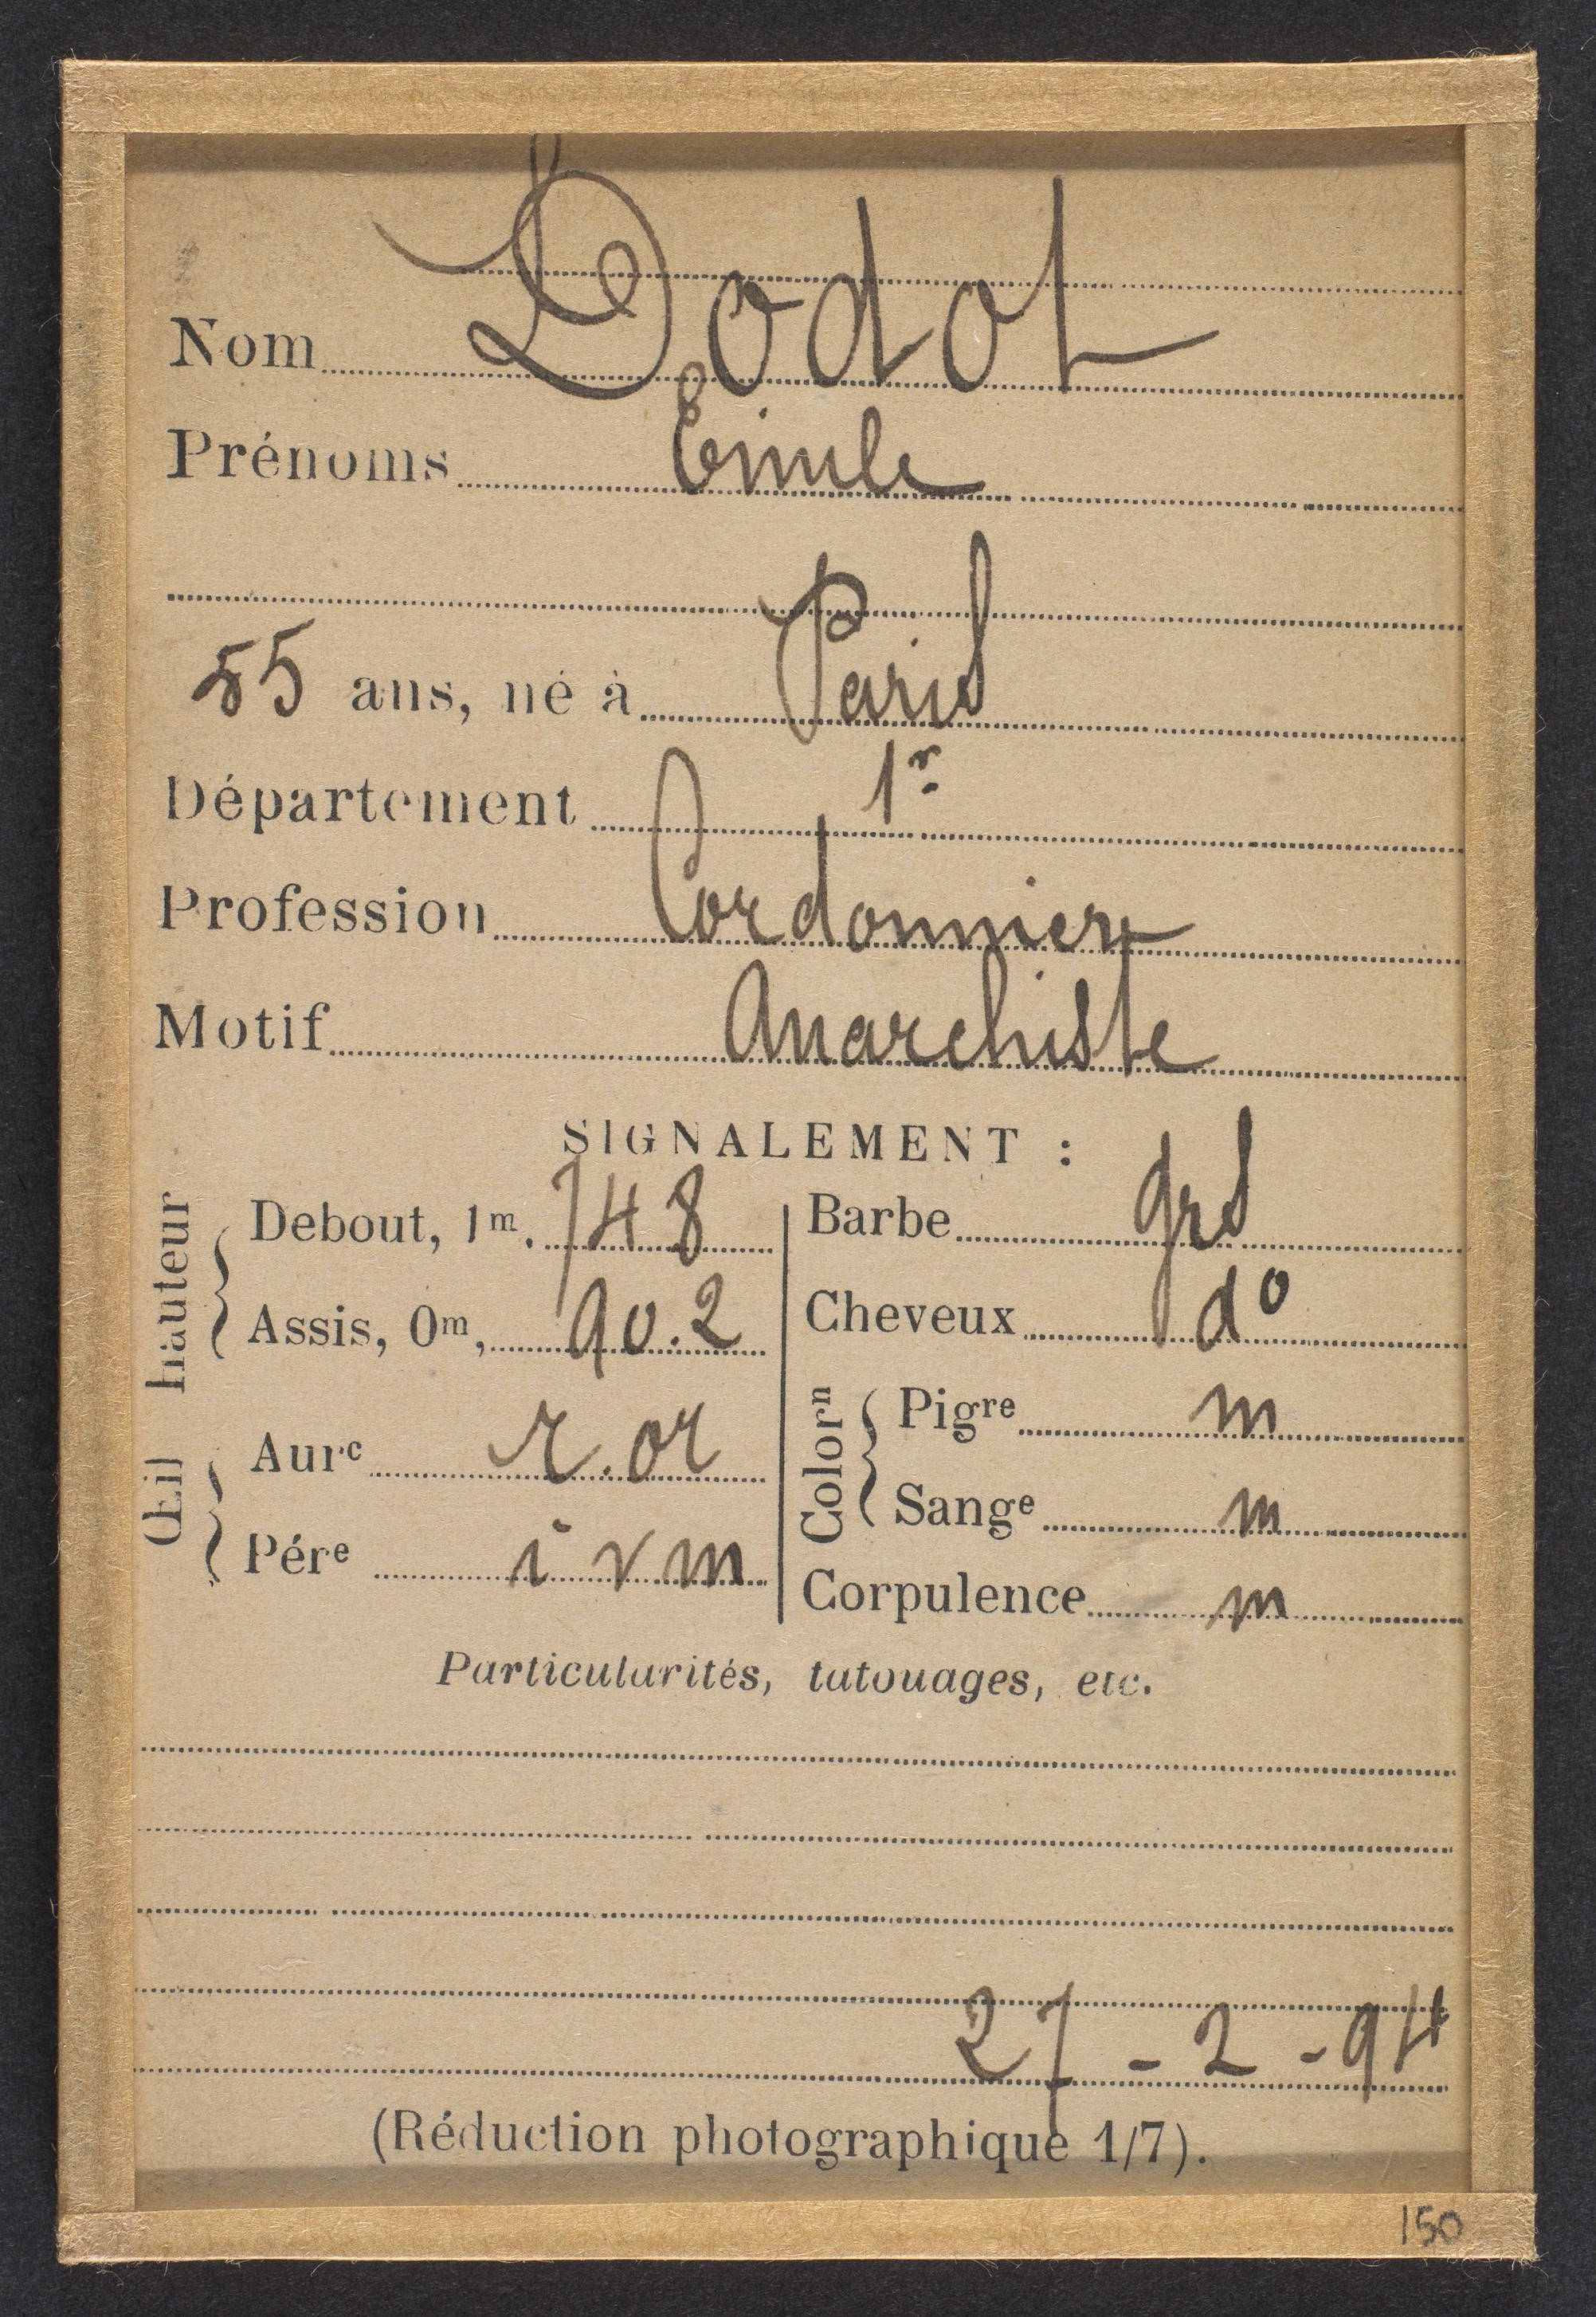 Nom Dodot
Prénoms Emile
55 ans, né à Paris
Département 1r
Profession Cordonnier
Motif Anarchiste
SIGNALEMENT :
hauteur
Debout, 1m, 748
Assis, 0m, 90.2
Œil
Aure r. or
Pére i v m
Barbe grs
Cheveux do
Colorn
Pigre m
Sange m
Corpulence m
Particularités, tatouages, etc.
27 - 2 - 94
(Réduction photographique 1/7).
150